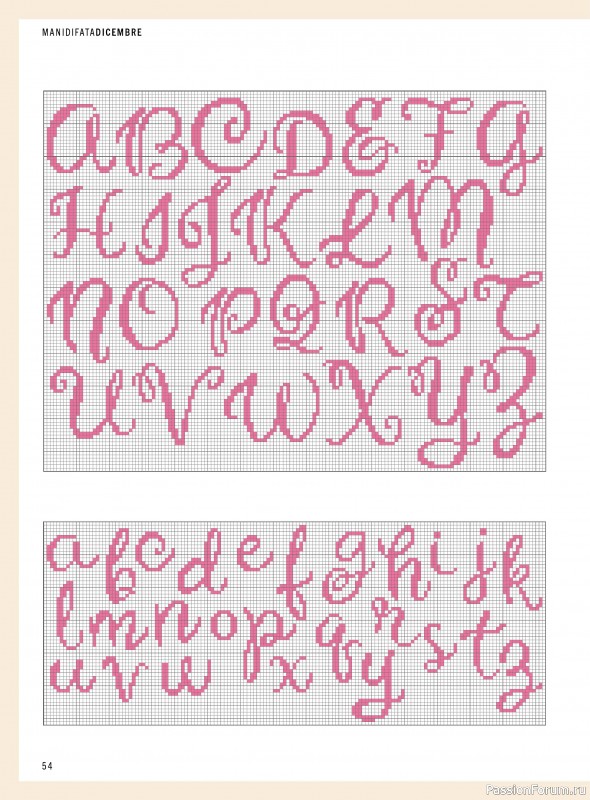 MANIDIFATADICEMBRE
A B C D E F G
H I J K L M
N O P Q R S T
U V W X Y Z
a b c d e f g h i j k
l m n o p q r s t
u v w x y z
54
PassionForum.ru